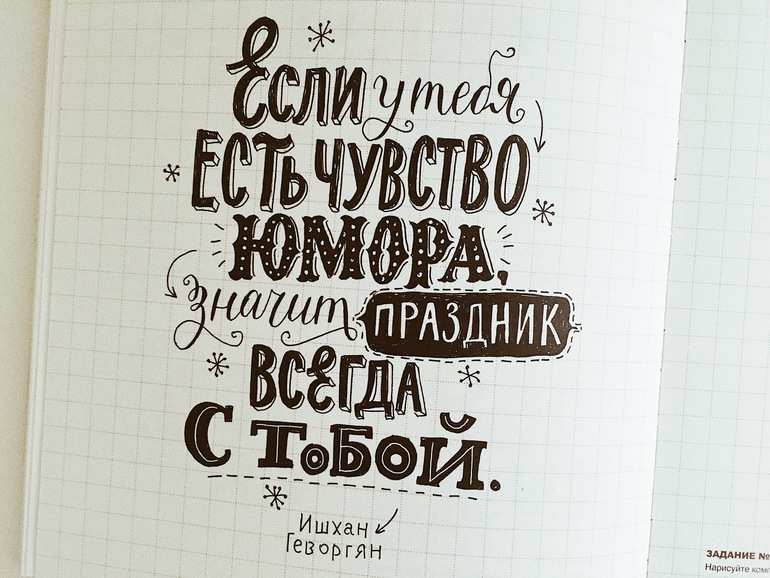 Если у тебя
ЕСТЬ ЧУВСТВО
ЮМОРА,
значит ПРАЗДНИК
ВСЕГДА
С ТОБОЙ.
Ишхан
Геворгян
ЗАДАНИЕ №
Нарисуйте